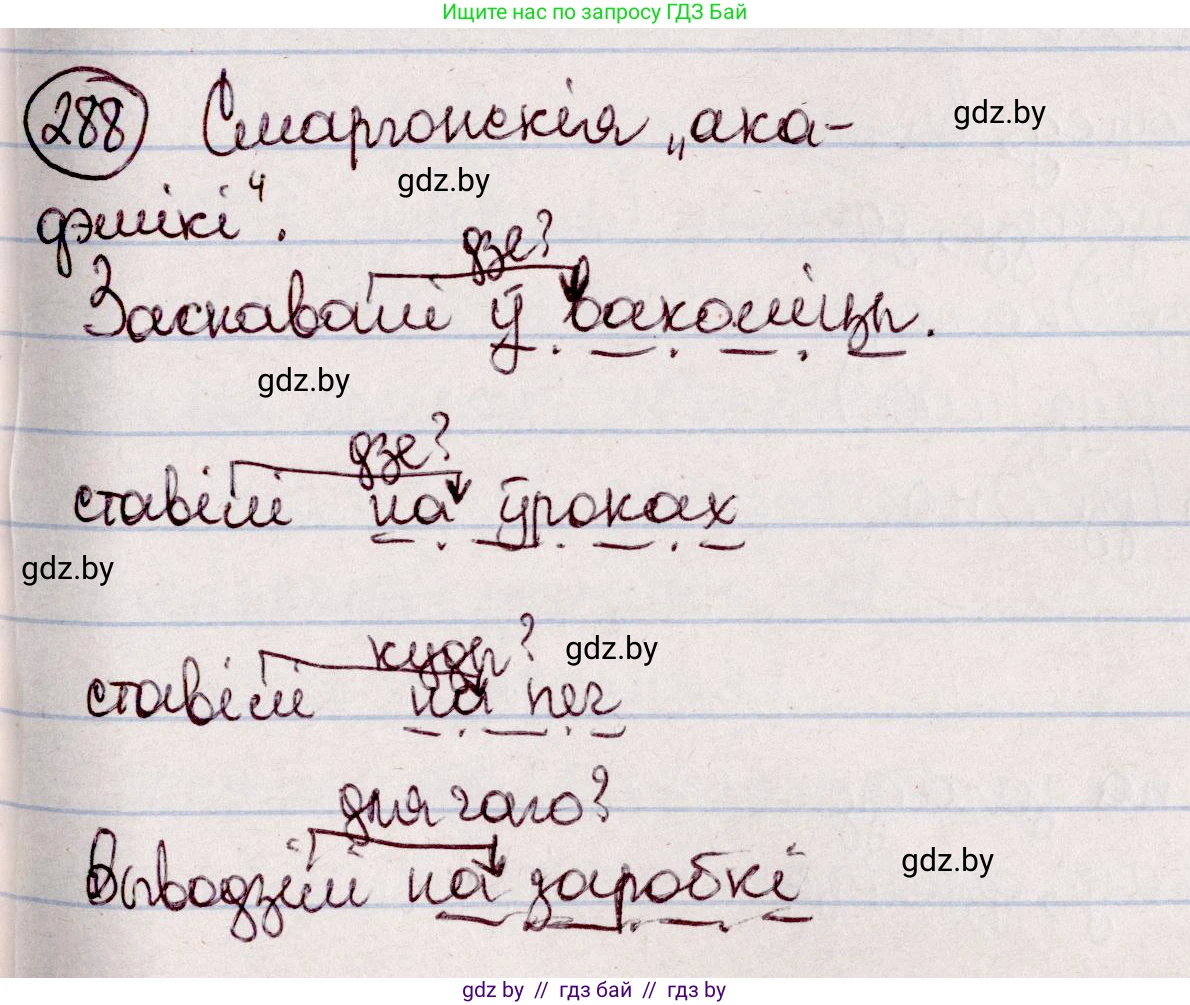 Ищите нас по запросу ГДЗ Бай
288 Смаргонскія „ака-
gdz.by
дэмікі“.
gdz.by
дзе?
Заснавалі ў ваколіцы.
gdz.by
дзе?
ставілі на ўроках
gdz.by
куды?
gdz.by
ставілі на печ
для чаго?
Выводзілі на заробкі
gdz.by
gdz by // гдз бай // гдз by